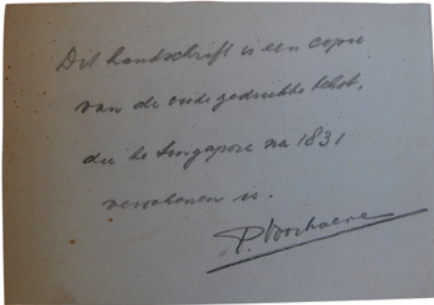 Dit handschrift is een copie
van de oude gedrukte tekst,
die te Singapore na 1831
verschenen is.
P. Voorhoeve